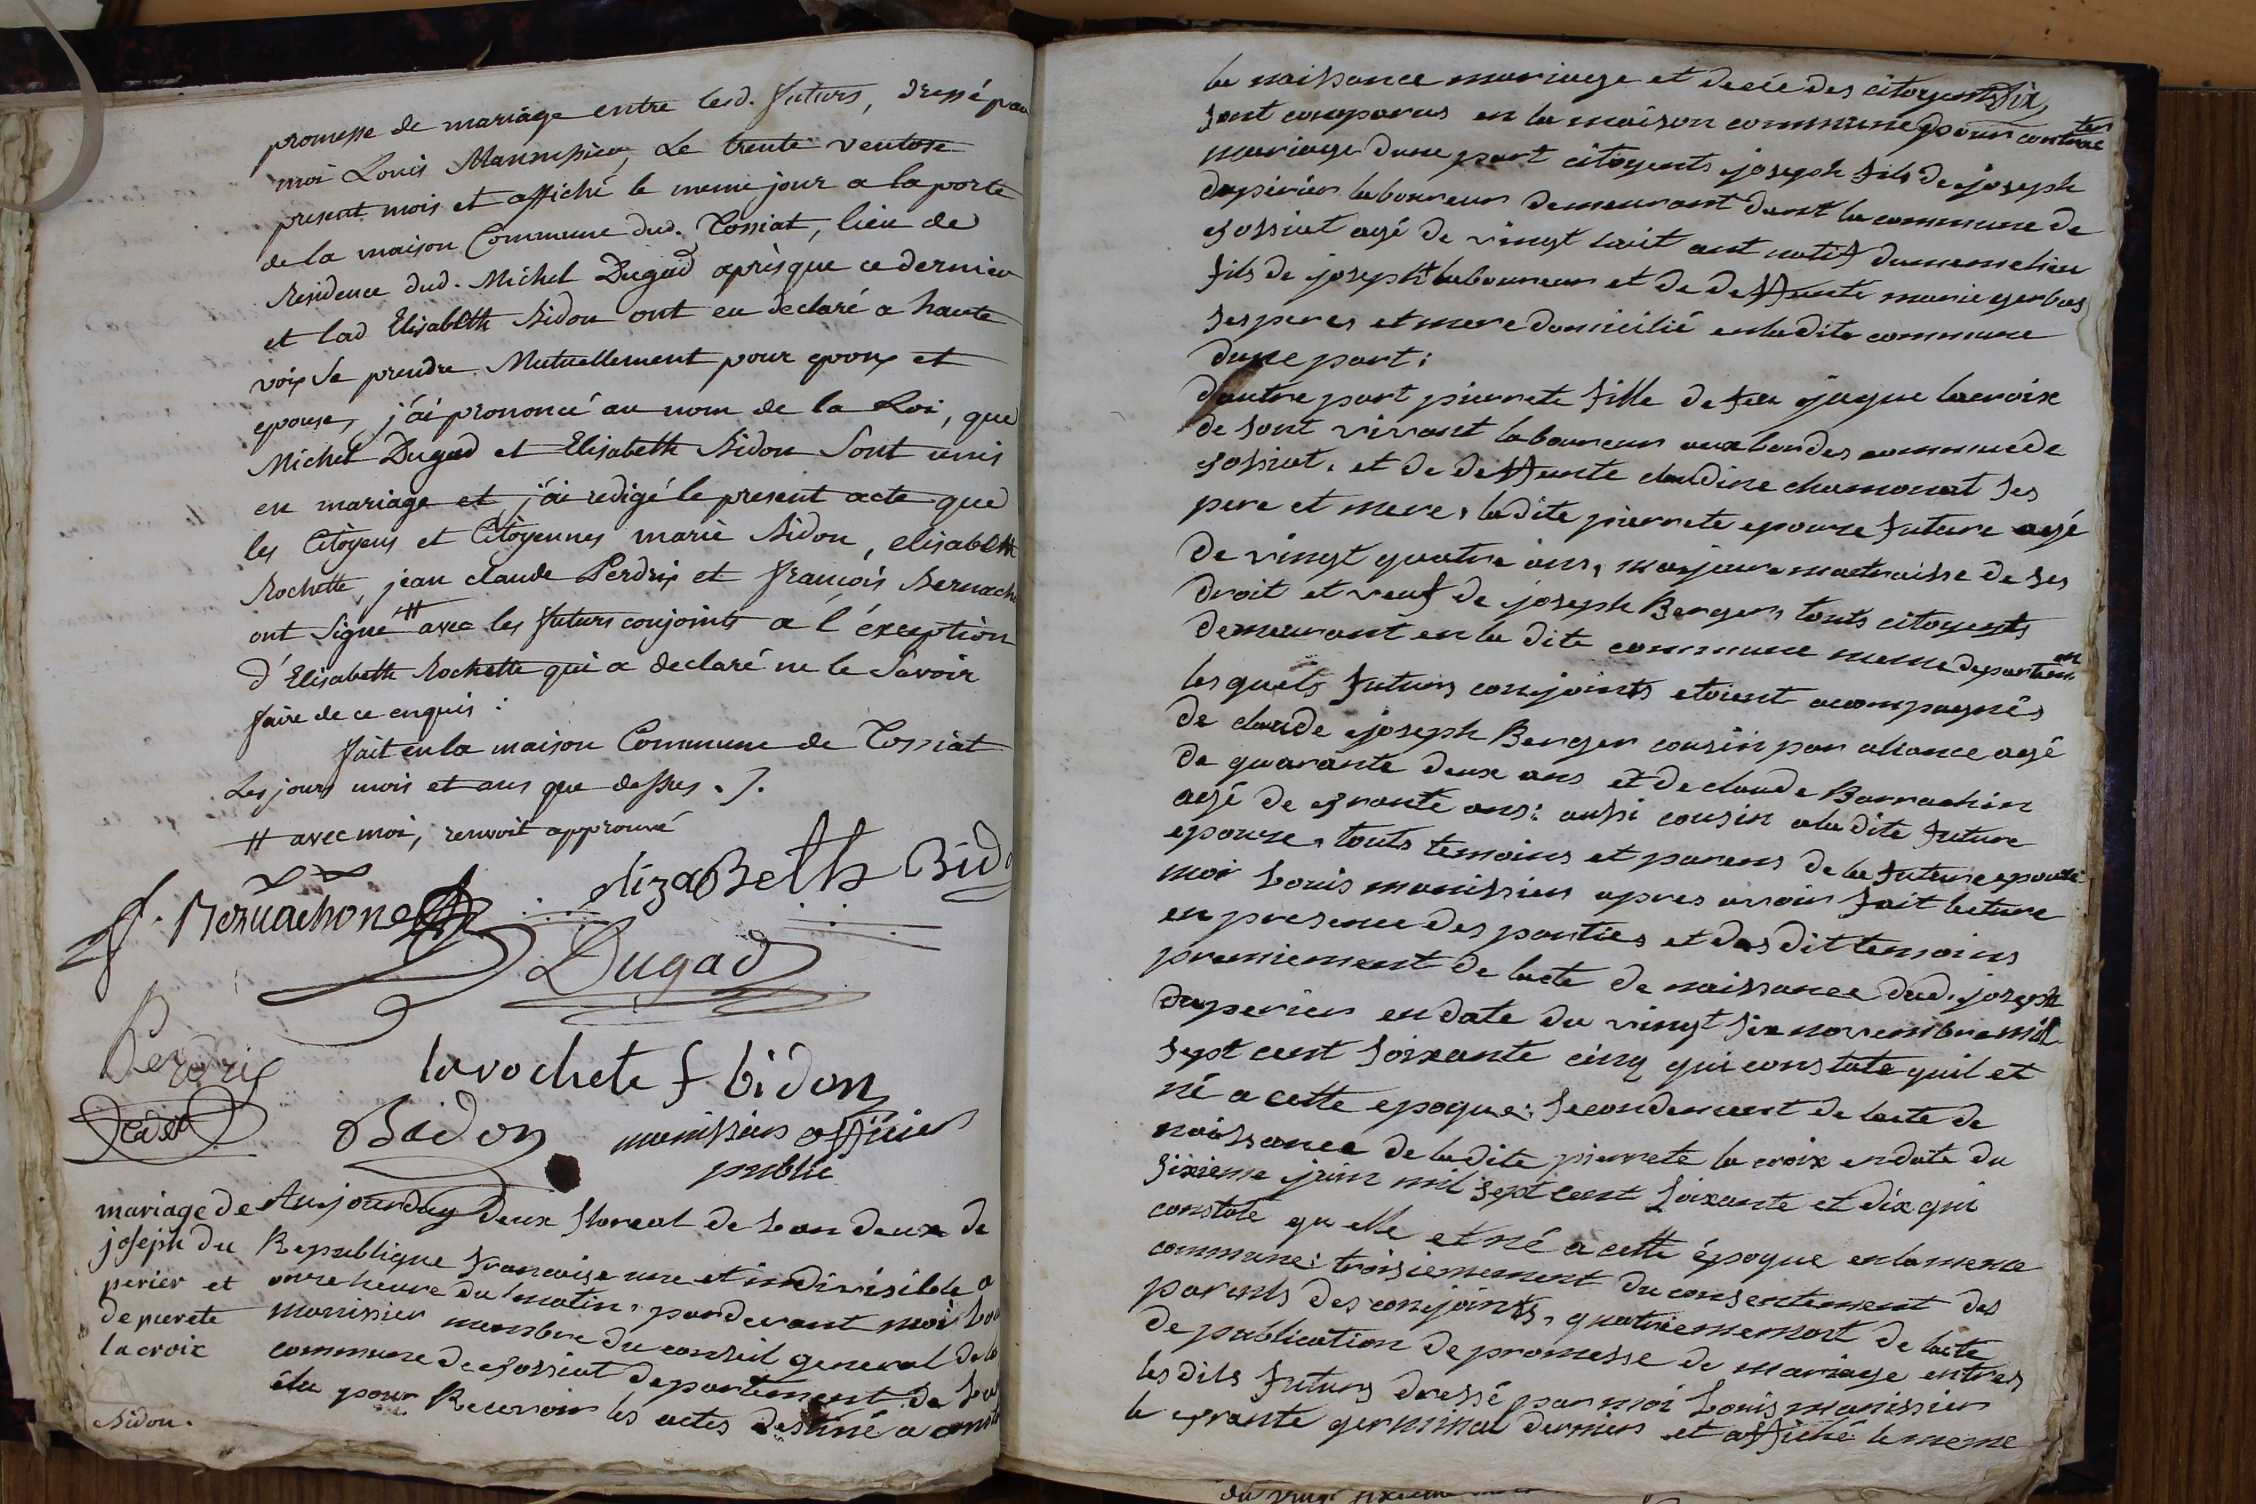 promesse de mariage entre lesd. futurs, dressé par
moi Louis Mannissier, Le trente ventose
present mois et affiché le meme jour a la porte
de la maison Commune dud. Tossiat, lieu de
Residence dud. Michel Dugad après que ce dernier
et lad Elisabeth Bidon ont eu declaré a haute
voix se prendre Mutuellement pour epoux et
epouse, j'ai prononcé au nom de la Loi, que
Michel Dugad et Elisabeth Bidon sont unis
en mariage et j'ai redigé le present acte que
les Citoyens et Citoyennes marie Bidon, elisabeth
Rochette, jean claude Perdrix et françois Bernachon
ont signé # avec les futurs conjoints a l'éxception
d'Elisabeth Rochette qui a declaré ne le savoir
faire de ce enquis :
fait en la maison Commune de Tossiat
Les jours mois et ans que dessus . /.
# avec moi, renvoit approuvé
elizaBeth Bido
f. Bernachon
Dugad
Perdrix
larochete f bidon
Cadet
Bidon
manissier officier
public
mariage de
joseph du
perier et
de pierete
la croix
Bidon.
Aujourduy deux floreal de lan deux de
Republique francoise une et indivisible a
onze heure du matin, pardevant moi Lou
manissier membre du conseil general de la
commune de tossiat departement de
élu pour Recevoir les actes destiné a
la naissance mariage et decée des citoyents six
sont comparus en la maison commune pour contrac
ter
mariage dune part citoyents joseph fils de joseph
duperier laboureur demeurant dant la commune de
tossiat agé de vingt huit ant natif du meme lieu
fils de joseph laboureur et de deffunte marie gerbas
ses peres et mere domicilié en ladite commune
dune part :
dautre part pierrete fille de feu jaque lacroix
de sont vivant laboureur aux bordes commune de
tossiat, et de deffunte claudine chamonat ses
pere et mere, ladite pierrete epouze future agé
de vingt quatre ans, majeure maitraisse de ses
droit et veuf de joseph Berger, touts citoyents
demeurant en la dite commune meme departem
en
lesquels futurs conjoints etoient acompagnés
de claude joseph Berger cousin par aliance agé
de quarante deux ans et de claude Barrachin
agé de trante ans : aussi cousin a la dite future
epouze, touts temoins et parens de la future epouze
moi Louis manissier apres avoir fait lecture
en presence des parties et des dit temoins
premierement de lacte de naissance dud. joseph
duperier en date du vingt six novembre mil
sept cent soixante cinq qui constate quil et
né a cette epoque : secondement de lacte de
naissance de ladite pierrete la croix en date du
sixieme juin mil sept cent soixante et dix qui
constate qu elle et né a cette époque en la meme
commune : troisiemement du consentement des
parents des conjoints, quatriememant de lacte
de publication de promesse de mariage entres
lesdits futurs dressé par moi Louis manissier
le trante germinal dernier et affiché le meme